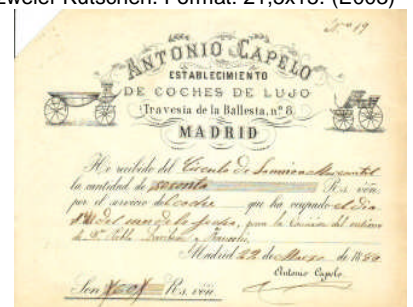 zweier Kutschen. Format: 21,5x15. (E003)
Nº 19
ANTONIO CAPELO
ESTABLECIMIENTO
DE COCHES DE LUJO
Travesía de la Ballesta, n.º 8
MADRID
He recibido del Círculo de la Union Mercantil
la cantidad de sesenta Rs. vón.
por el servicio del coche que ha ocupado el dia
para la Comision del entierro
de Dn Pablo
Madrid 22 de Marzo de 18
Antonio Capelo
Son 60 Rs. vón.